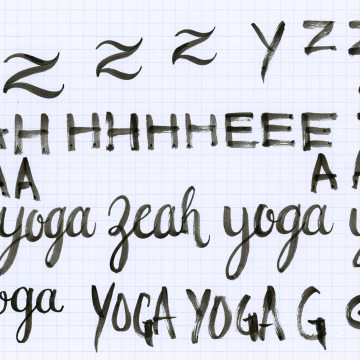 Z Z Z Y Z Z
A H H H H H E E E
A A A A
yoga zeah yoga y
oga YOGA YOGA G G